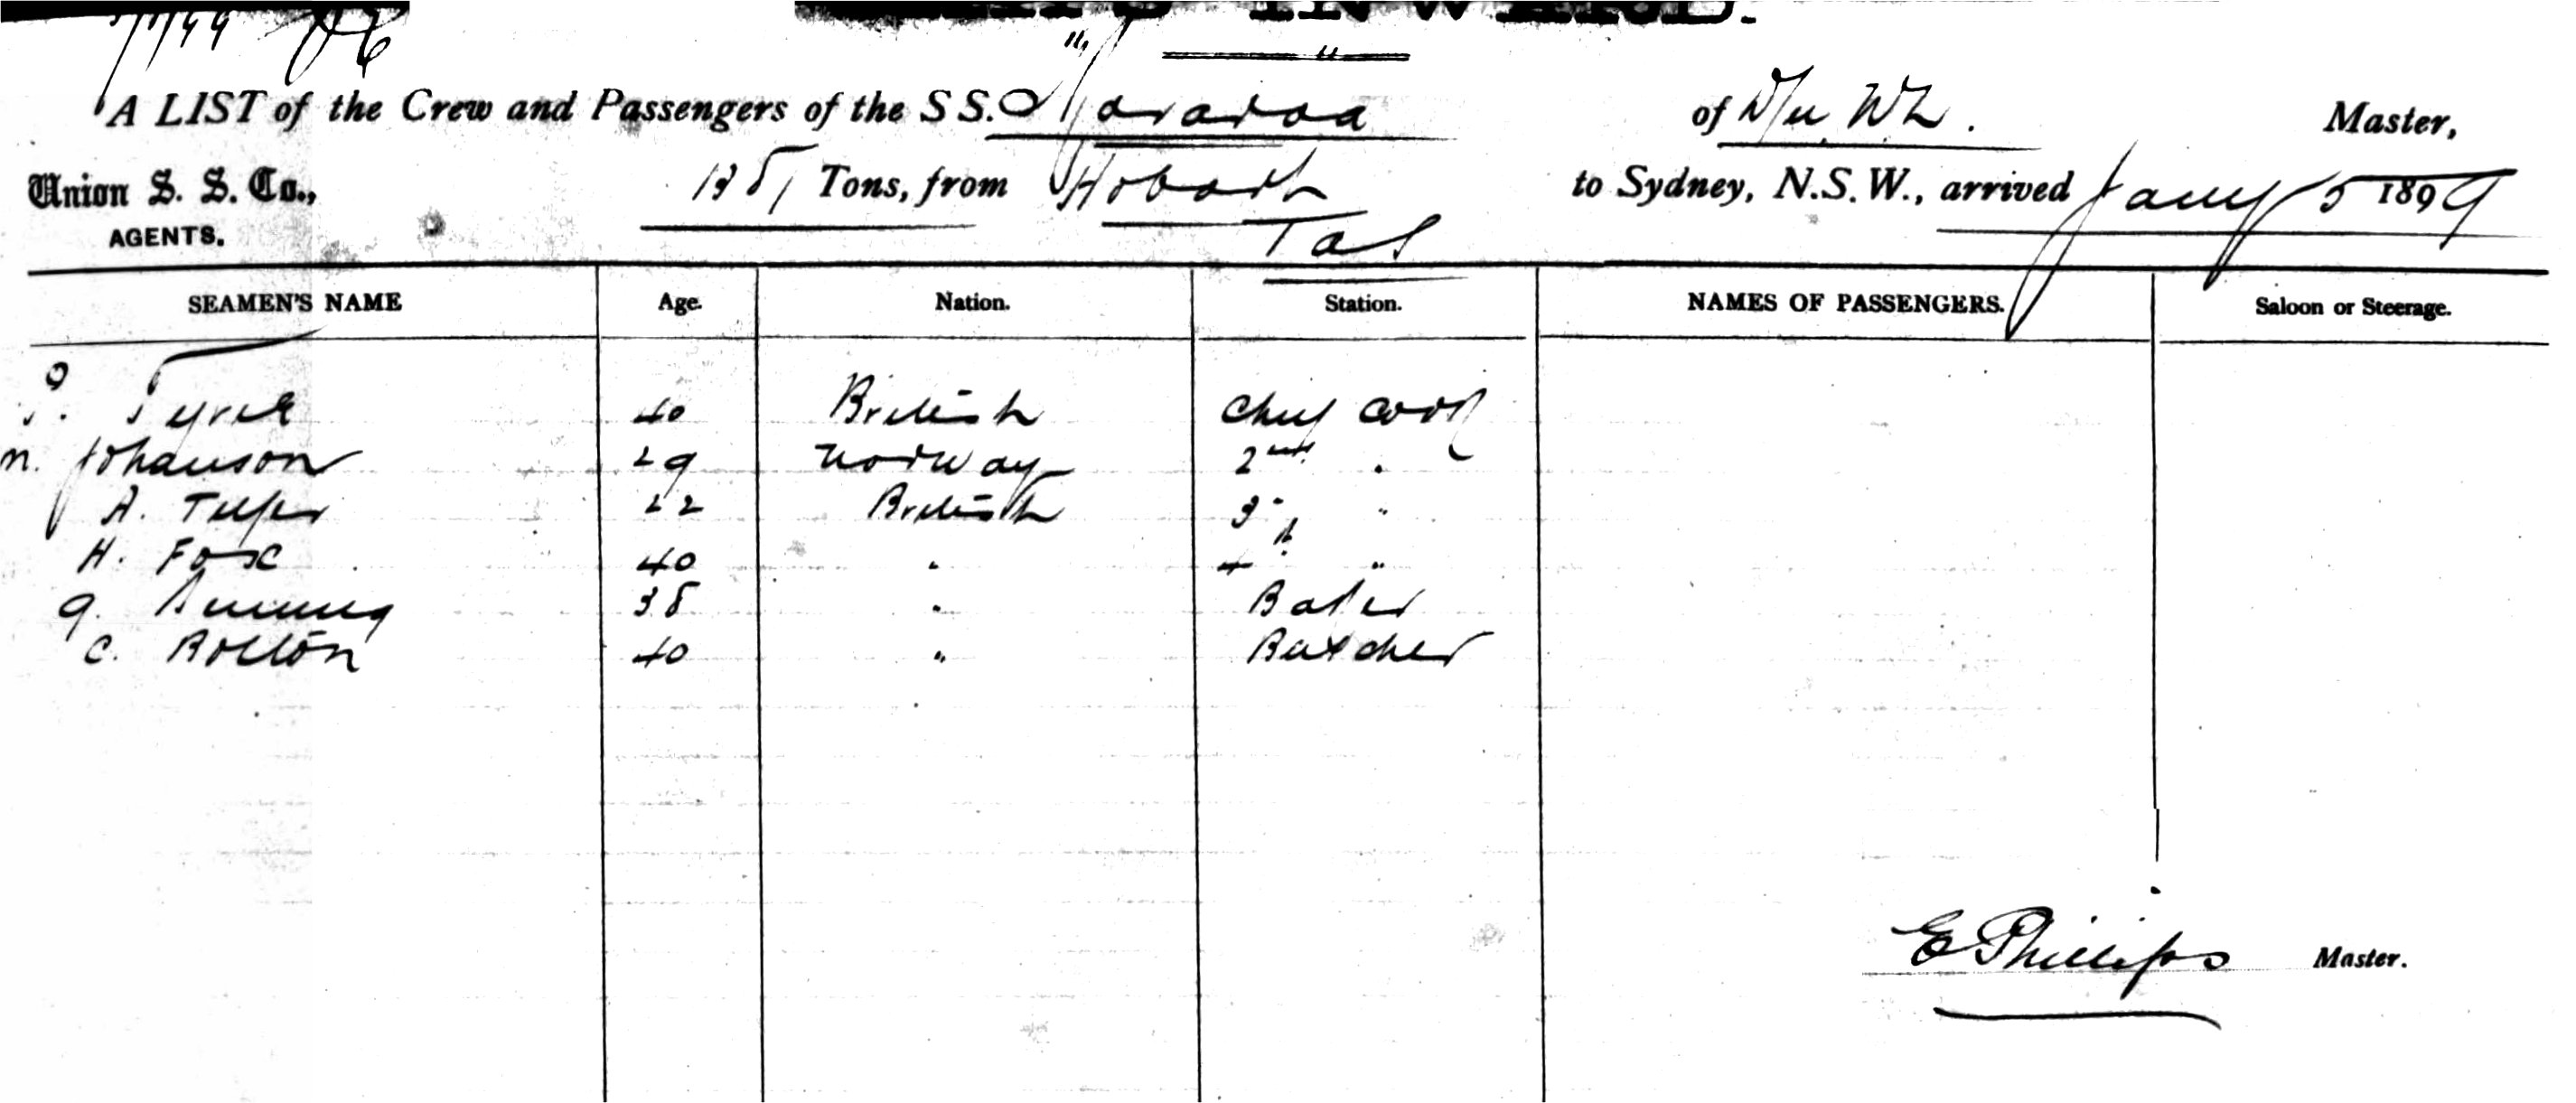 INWARD.
5/1/99
A LIST of the Crew and Passengers of the SS. "Mararoa" of Master,
Union S. S. Co., Tons, from Hobart to Sydney, N.S.W., arrived Jany 5 1899
AGENTS. Tas
SEAMEN'S NAME Age. Nation. Station. NAMES OF PASSENGERS. Saloon or Steerage.
Tyrer 40 British Chief Cook
N. Johanson 29 Norway 2nd "
A. 22 British 3rd "
H. Fox 40 " 4th "
38 " Baker
C. Bolton 40 " Butcher
E Phillips Master.